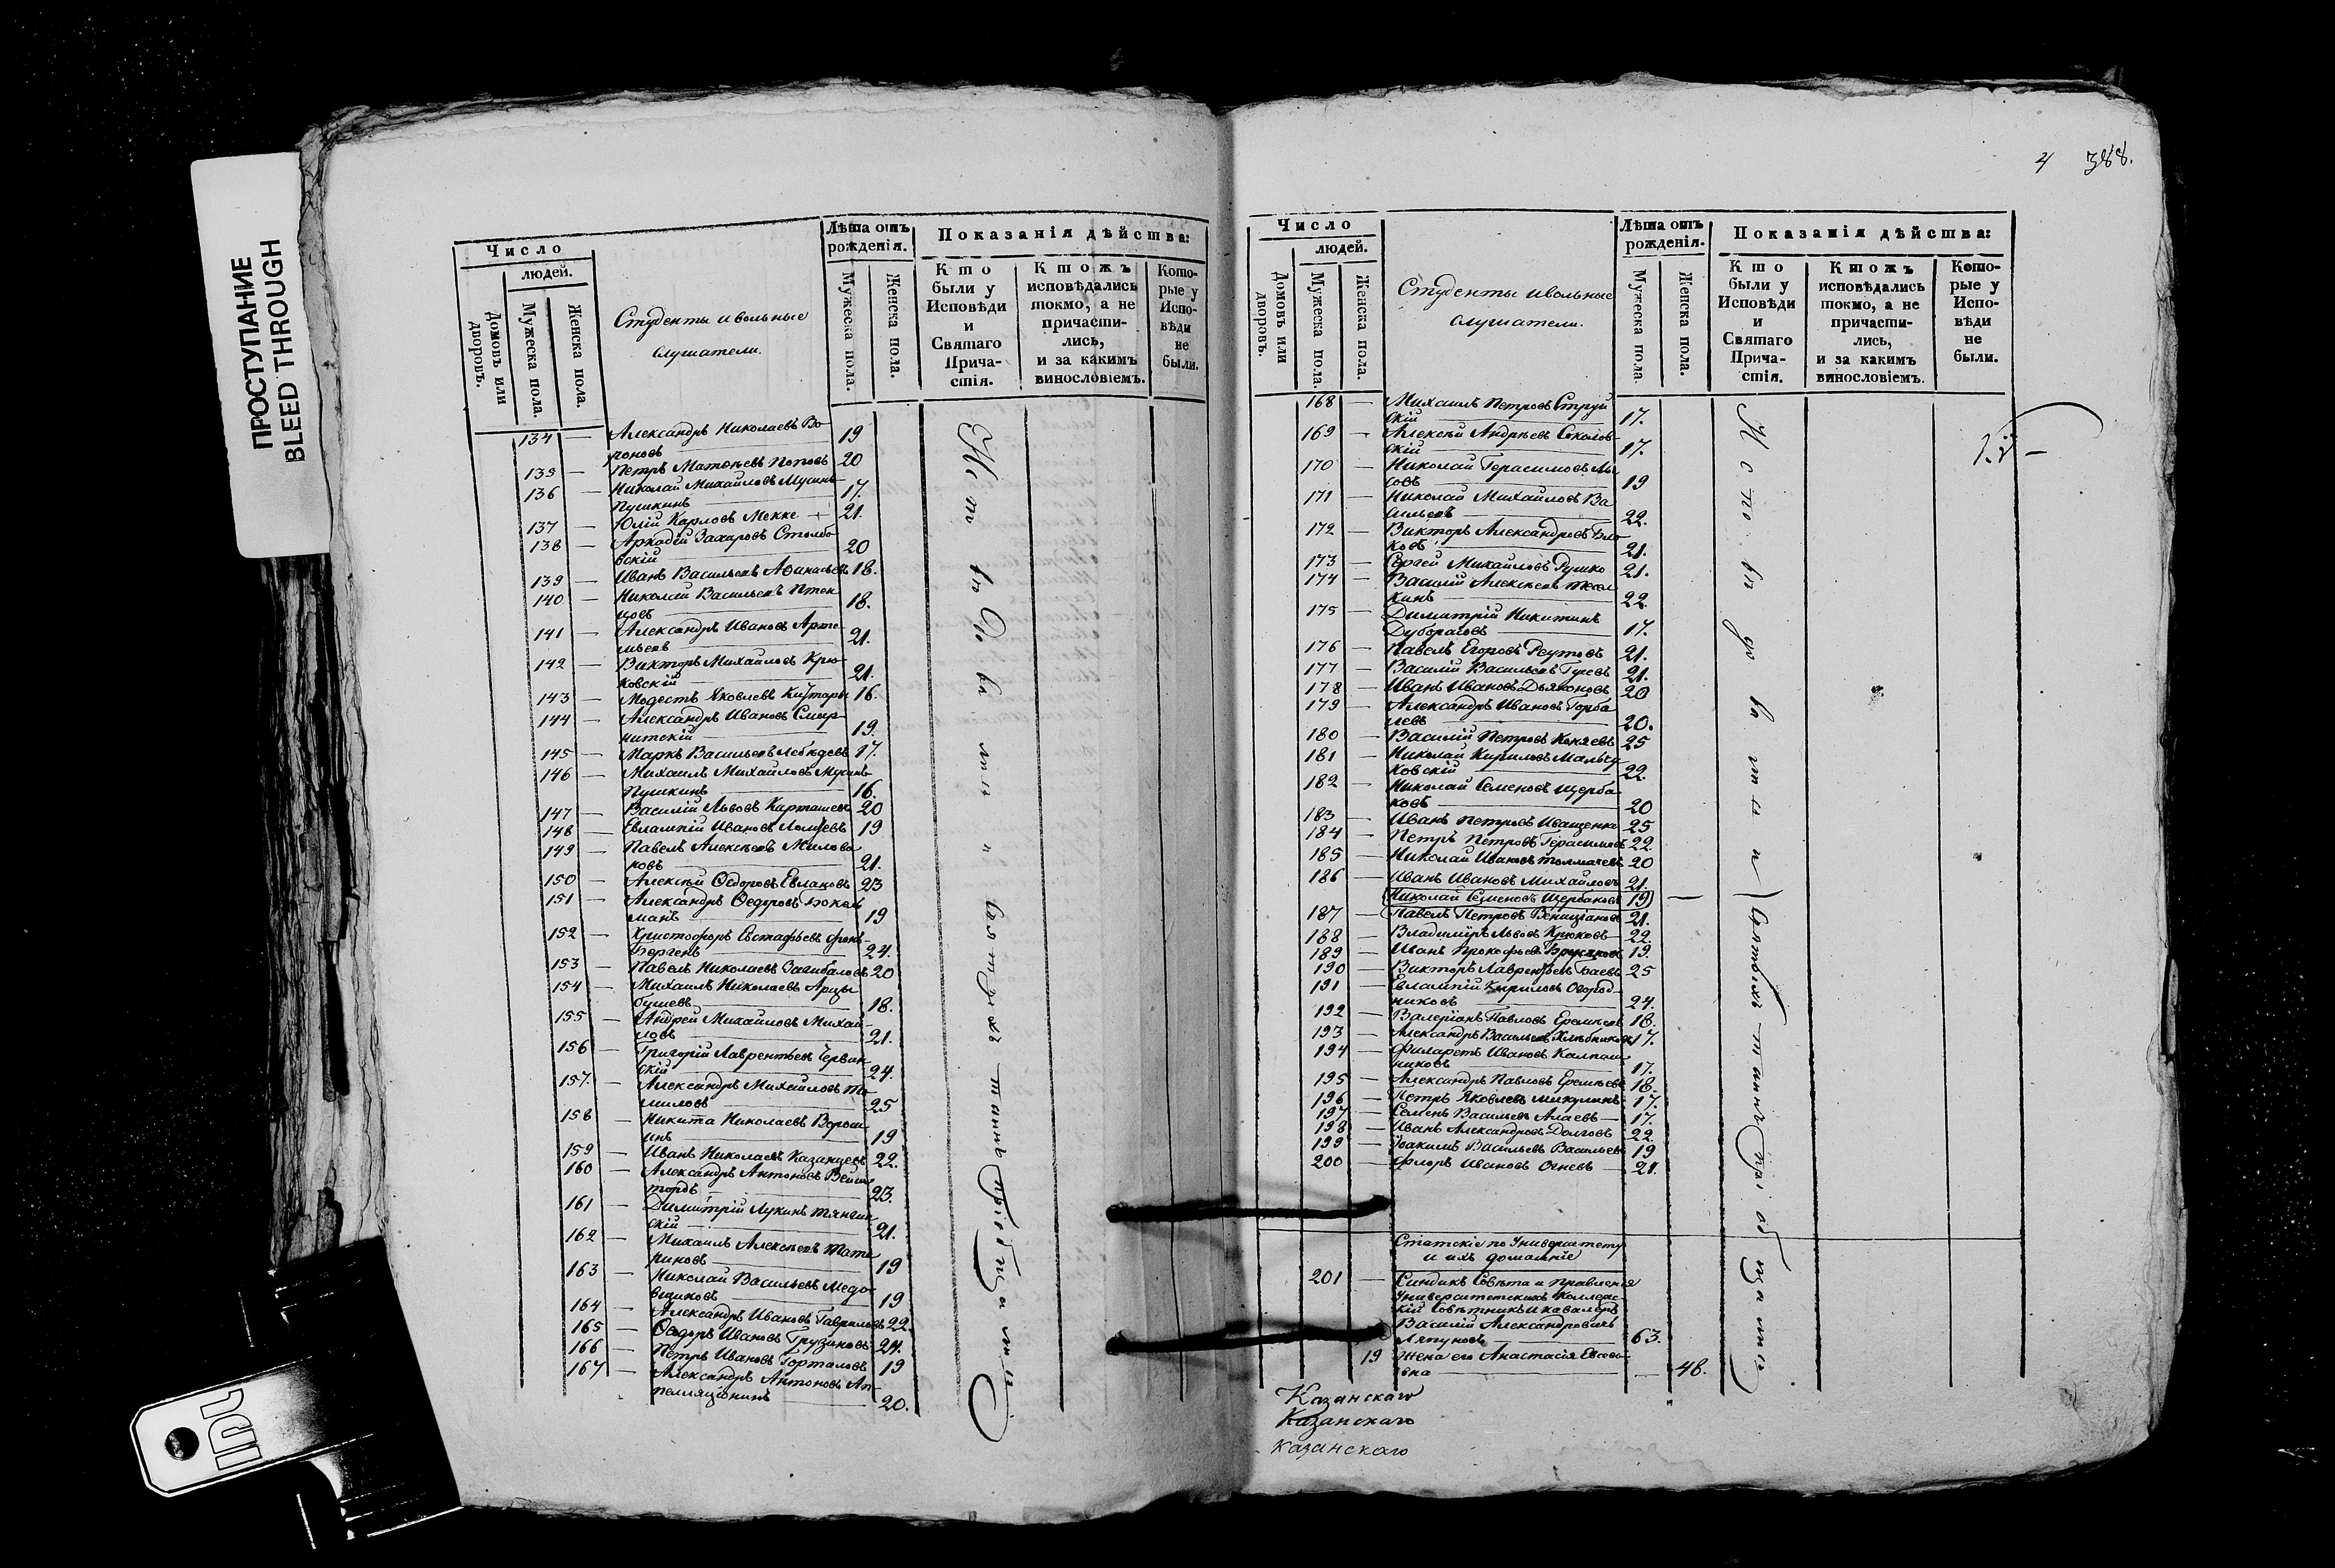 ПРОСТУПАНИЕ
BLEED THROUGH
Число
людей.
Домовъ или дворовъ.
Мужеска пола.
Женска пола.
Студенты и вольные
слушатели.
Лѣта отъ
рожденія.
Мужеска пола.
Женска пола.
Показанія дѣйства:
Кто
были у
Исповѣди
и
Святаго
Прича-
стія.
Ктожъ
исповѣдались
токмо, а не
причасти-
лись,
и за какимъ
винословіемъ.
Кото-
рые у
Испо-
вѣди
не
были.
134 — Александръ Николаевъ Во-
роновъ — 19
135 — Петръ Матвѣевъ Поповъ 20
136 — Николай Михайловъ Мусинъ
Пушкинъ — 17.
137 — Юлій Карловъ Мекке — 21.
138 — Аркадій Захаровъ Столбо
вскій — 20
139 — Иванъ Васильевъ Афанасьевъ 18.
140 — Николай Васильевъ Птен
цовъ — 18.
141 — Александръ Ивановъ Арте
мьевъ — 21.
142 — Викторъ Михайловъ Крю-
ковскій — 21.
143 — Модестъ Яковлевъ Киттары 16.
144 — Александръ Ивановъ Смир-
нитскій — 19.
145 — Маркъ Васильевъ Лебедевъ 17.
146 — Михаилъ Михайловъ Мусинъ
Пушкинъ — 16.
147 — Василій Львовъ Карташевъ 20
148 — Евлампій Ивановъ 19
149 — Павелъ Алексѣевъ Милова
новъ — 21.
150 — Алексѣй Ѳедоровъ Евлановъ 23
151 — Александръ Ѳедоровъ Бокель
манъ — 19
152 — Христофоръ Евстафьевъ фонъ-
Бергенъ — 24.
153 — Павелъ Николаевъ Загибаловъ 20
154 — Михаилъ Николаевъ Арцы
бушевъ — 18.
155 — Андрей Михайловъ Михай-
ловъ — 21.
156 — Григорій Лаврентьевъ Червин
скій — 24.
157. — Александръ Михайловъ То
миловъ — 25
158 — Никита Николаевъ
19
159 — Иванъ Николаевъ Казанцевъ 22.
160 — Александръ Антоновъ
23.
161 — Димитрій Лукинъ
скій — 21.
162 — Михаилъ Алексѣевъ Тата
риновъ — 19
163 — Николай Васильевъ Медо-
вщиковъ — 19
164 — Александръ Ивановъ Гавриловъ 22.
165 — Ѳедоръ Ивановъ Грузиновъ 24.
166 — Петръ Ивановъ Горталовъ 19
167 — Александръ Антоновъ Ап-
пелляціонинъ — 20.
Исповѣдались и Святыхъ таинъ пріобщались
4 388.
Число
людей.
Домовъ или дворовъ.
Мужеска пола.
Женска пола.
Студенты и вольные
слушатели.
Лѣта отъ
рожденія.
Мужеска пола.
Женска пола.
Показанія дѣйства:
Кто
были у
Исповѣди
и
Святаго
Прича-
стія.
Ктожъ
исповѣдались
токмо, а не
причасти-
лись,
и за какимъ
винословіемъ.
Кото-
рые у
Испо-
вѣди
не
были.
168 — Михаилъ Петровъ Струй
скій — 17.
169 — Алексѣй Андреевъ Соколов-
скій — 17.
170 — Николай Герасимовъ
19
171 — Николай Михайловъ Ва
сильевъ — 22.
172 — Викторъ Александровъ
ковъ — 21.
173 — Сергей Михайловъ Рушко 21.
174 — Василій Алексѣевъ
кинъ — 22.
175 — Димитрій Никитинъ
Дуборасовъ — 17.
176 — Павелъ Егоровъ Реутовъ 21.
177 — Василій Васильевъ Гусевъ 21.
178 — Иванъ Ивановъ Дьяконовъ 20
179 — Александръ Ивановъ Горба
чевъ — 20.
180 — Василій Петровъ Конаевъ 25
181 — Николай Кириловъ
ковскій — 22.
182 — Николай Семеновъ Щерба
ковъ — 20
183 — Иванъ Петровъ Иващенко 25
184 — Петръ Петровъ Герасимовъ 22.
185 — Николай Ивановъ Толмачевъ 20
186 — Иванъ Ивановъ Михайловъ 21.
Николай Семеновъ Щербаковъ 19
187 — Павелъ Петровъ Вениціановъ 21.
188 — Владимиръ Львовъ Крюковъ — 22.
189 — Иванъ Прокофьевъ 19.
190 — Викторъ Лаврентьевъ Баевъ 25
191 — Евлампій Кириловъ Огород-
никовъ — 24.
192 — Валеріанъ Павловъ Еремѣевъ 18.
193 — Александръ Васильевъ Хлѣбниковъ 17.
194 — Филаретъ Ивановъ Калташ
никовъ — 17.
195 — Александръ Павловъ Еремѣевъ 18.
196 — Петръ Яковлевъ Микулинъ 17.
197 — Семенъ Васильевъ Алаевъ — 17.
198 — Иванъ Александровъ Долговъ 22.
199 — Іоакимъ Васильевъ Васильевъ 19
200 — Флоръ Ивановъ Огневъ — 21.
Статскіе по Университету
и ихъ домашніе
201 — Синдикъ Совѣта и Правленія
Университетскихъ Коллеж-
скій Совѣтникъ и кавалеръ
Василій Александровичь
Ляпуновъ — 63.
19 Жена его Анастасія Евсевь
вна — 48.
Исповѣдались Святыхъ таинъ пріобщались
Казанскаго
Казанскаго
казанскаго